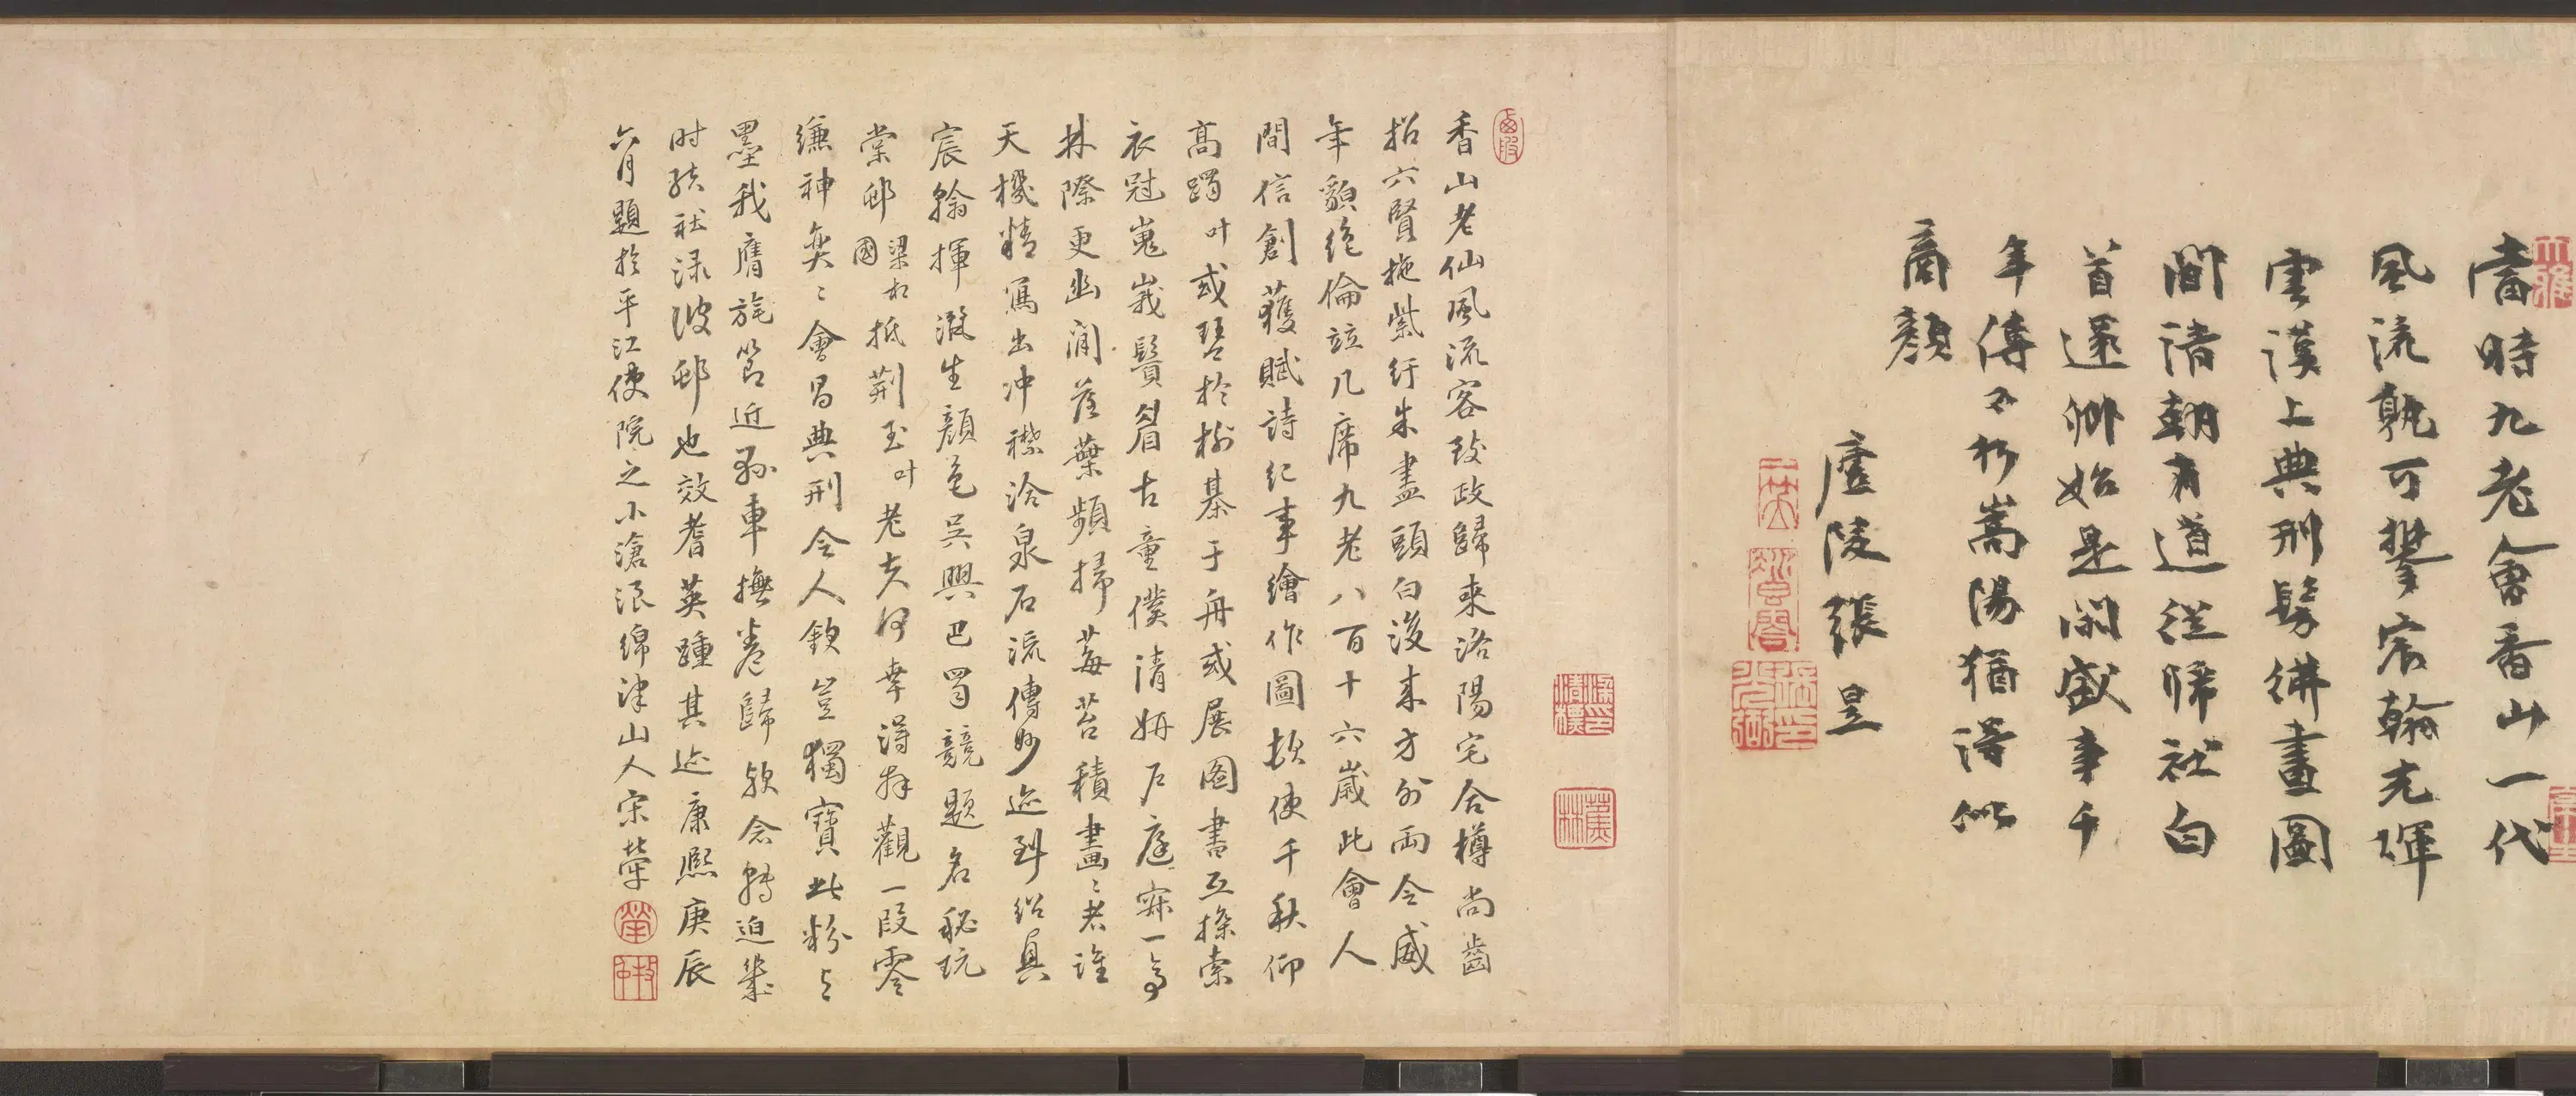 當時九老會香山一代
風流孰可攀宸翰光輝
雲漢上典刑髣彿畫圖
間清朝有道從歸社白
首還鄉始是閑盛事千
年傳不朽嵩陽猶得似
商顏
廬陵張昱
香山老仙風流客致政歸來洛陽宅合樽尚齒
招六賢拖紫紆朱盡頭白後來方外兩令威
年貌絕倫竝几席九老八百十六歲此會人
間信創獲賦詩紀事繪作圖扵使千秋仰
高躅叶或琴於樹棊于舟或展圖書互探索
衣冠嵬峩鬢眉古童僕清妍戶庭寂一亭
林際更幽闃落葉頻掃莓苔積畫畫者誰
天機精寫出冲襟洽泉石流傳妙迹到紹興
宸翰揮灑生顏色吳興巴蜀競題名秘玩
棠邨梁相國抵荊玉叶老夫何幸得拜觀一段零
縑神奕奕會昌典刑令人欽豈獨寶此粉與
墨我膺旄節近懸車撫卷歸歟念轉迫幾
時結社淥波邨也效耆英踵其迹康熙庚辰
六月題於平江使院之小滄浪綿津山人宋犖